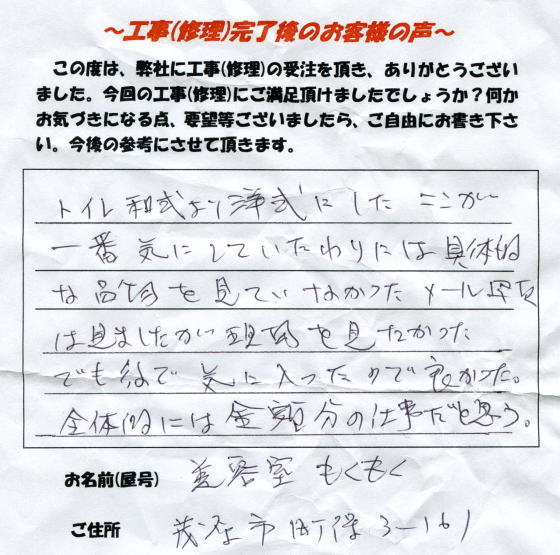 ～工事(修理)完了後のお客様の声～
この度は、弊社に工事(修理)の受注を頂き、ありがとうござい
ました。今回の工事(修理)にご満足頂けましたでしょうか?何か
お気づきになる点、要望等ございましたら、ご自由にお書き下さ
い。今後の参考にさせて頂きます。
トイレ和式より洋式にした ここが
一番気にしていたわりには具体的
な品物を見ていなかった メール写真
は見ましたが現物を見たかった
でも後で気に入ったので良かった。
全体的には金額分の仕事だと思う。
お名前(屋号) 美容室 もくもく
ご住所 茂原市町保3-161